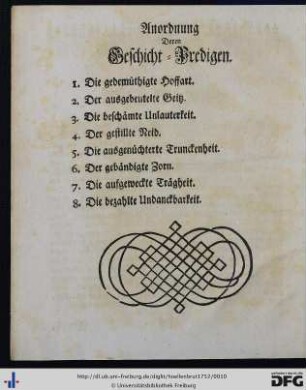 Anordnung
Deren
Geschicht-Predigen.
1. Die gedemüthigte Hoffart.
2. Der ausgebeutelte Geitz.
3. Die beschämte Unlauterkeit.
4. Der gestillte Neid.
5. Die ausgenüchterte Trunckenheit.
6. Der gebändigte Zorn.
7. Die aufgeweckte Trägheit.
8. Die bezahlte Undanckbarkeit.
http://dl.ub.uni-freiburg.de/diglit/hoellenbrat1752/0010
© Universitätsbibliothek Freiburg
DFG